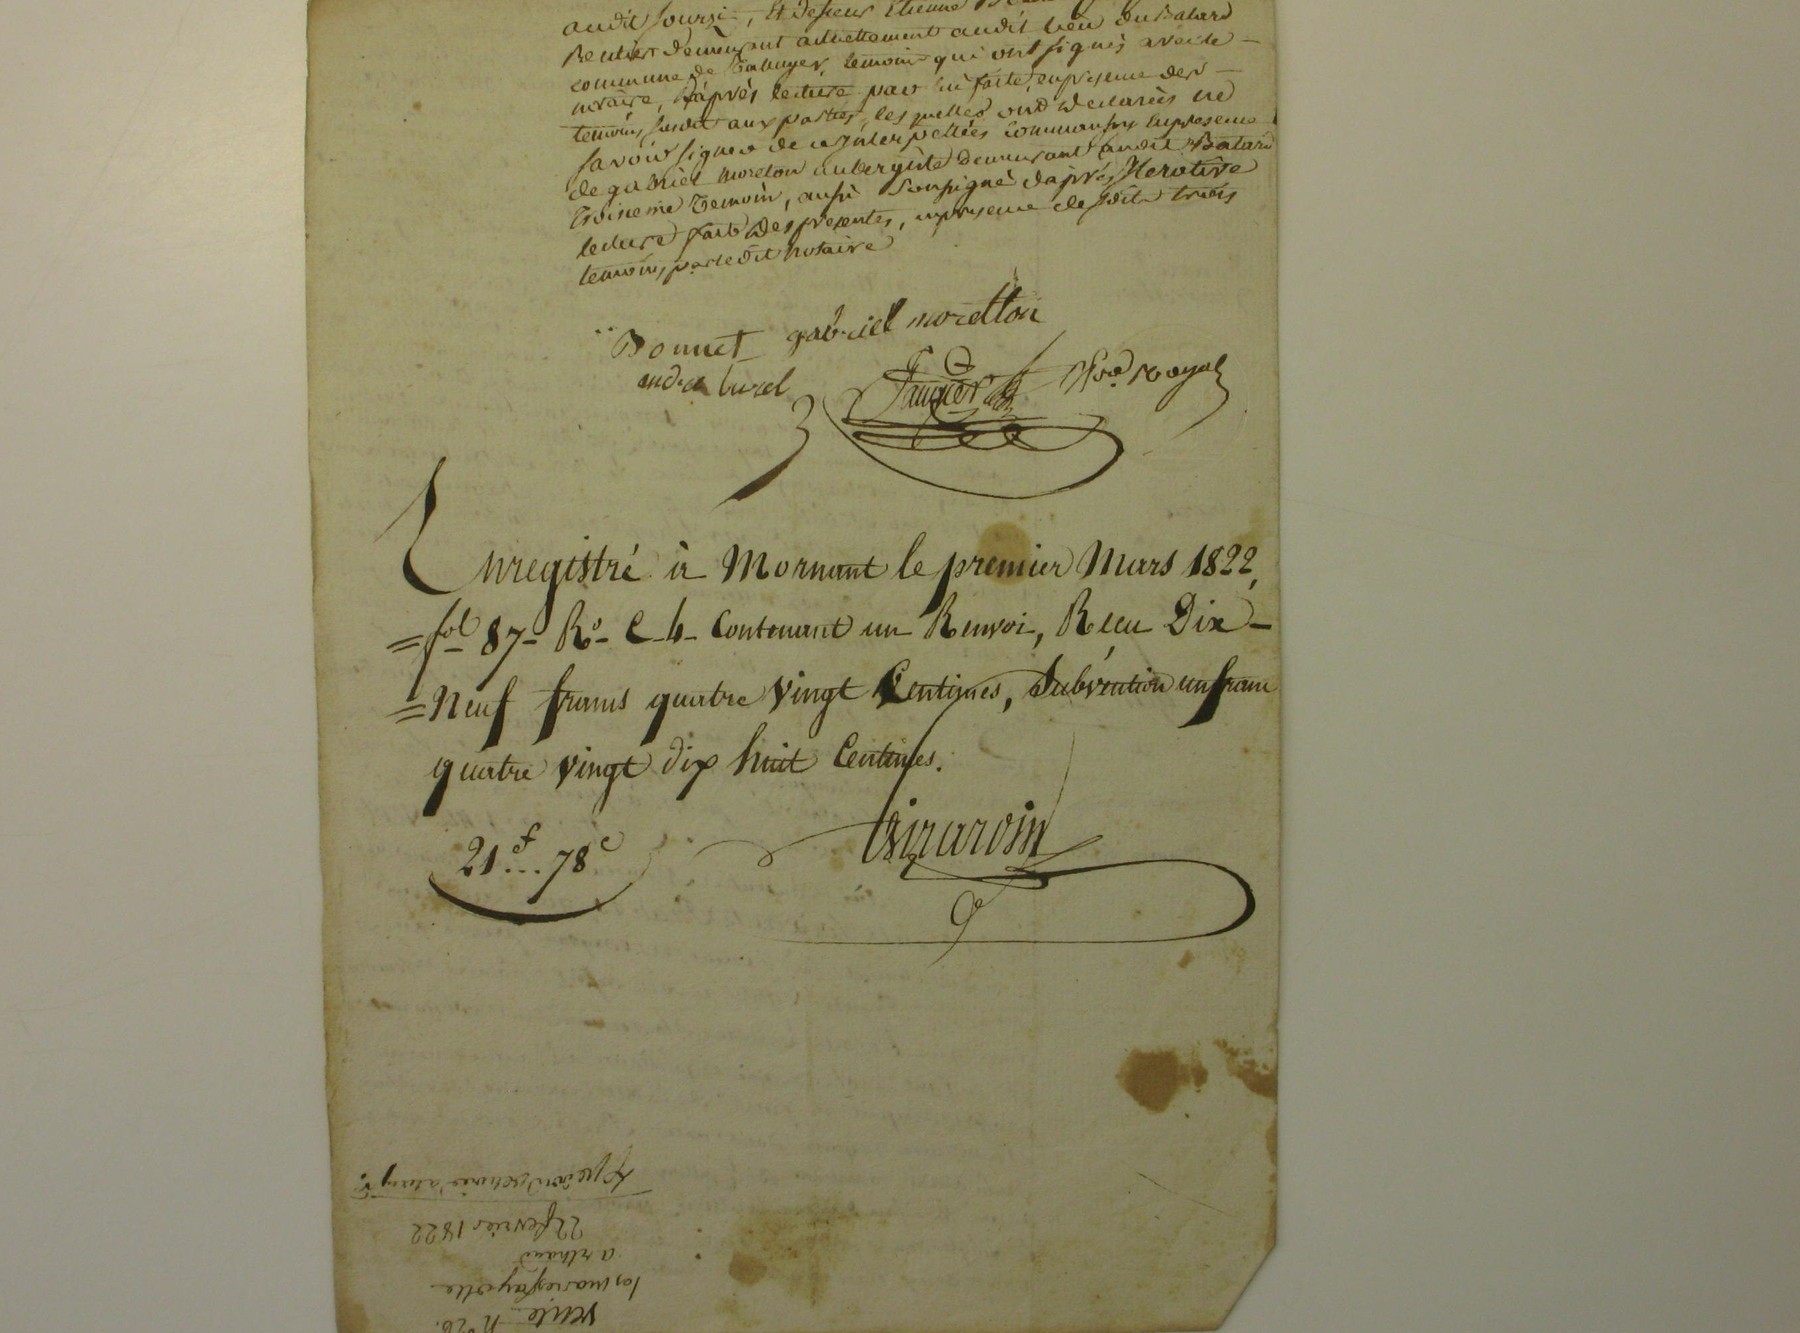 audit Sourzi, et de sieur Etienne
Rentier demeurant actuellement audit lieu du Batard
commune de Taluyer, temoins qui ont signés avec le
notaire, d'après lecture par lui faite, en presence des
temoins, susdit aux parties, les quelles ont declarées ne
savoir signer de ce interpellées
de gabriel moreton aubergiste demeurant audit Batard
troisieme temoin, aussi soussigné d'après
lecture faite des presentes, en presence desdits trois
temoins, par le dit notaire
Bonnet gabriel moretton
andré burel
Enregistré à Mornant le premier Mars 1822,
fol 87 - Ro - C 4 - Contenant un Renvoi, Recu Dix-
=Neuf francs quatre vingt Centimes, Subvention un franc
quatre vingt dix huit Centimes.
21f...78c
Girardin
22 fevrier 1822
vente no 26.